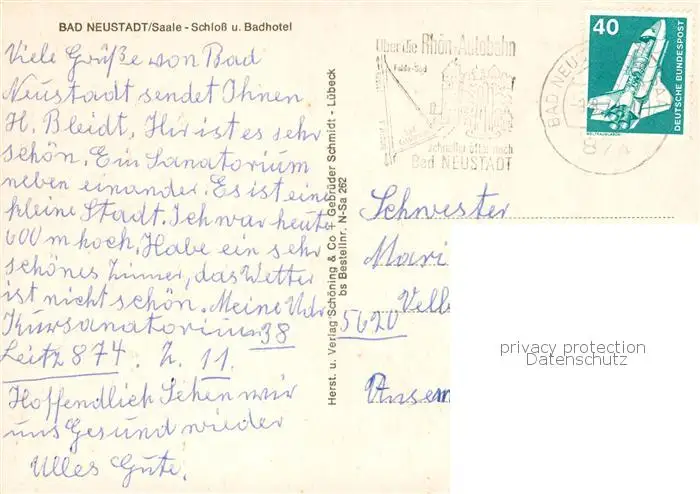 BAD NEUSTADT/Saale - Schloß u. Badhotel
Viele Grüße von Bad
Neustadt sendet Ihnen
H. Bleidt, Hir ist es sehr
schön. Ein Sanatorium
neben einander. Es ist eine
kleine Stadt. Ich war heute
600 m hoch. Habe ein sehr
schönes Zimmer, das Wetter
ist nicht schön. Meine Adr
Kursanatorium 38
Leitz 874. Z. 11.
Hoffendlich Sehen wir
uns Gesund wieder
Alles Gute.
Herst. u. Verlag Schöning & Co + Gebrüder Schmidt - Lübeck
bs Bestellnr. N-Sa 262
Über die Rhön-Autobahn
Fulda-Süd
schneller öfter nach
Bad NEUSTADT
BAD NEU
874
40
DEUTSCHE BUNDESPOST
WELTRAUMLABOR
Schwester
Mari
Velb
5620
privacy protection
Datenschutz